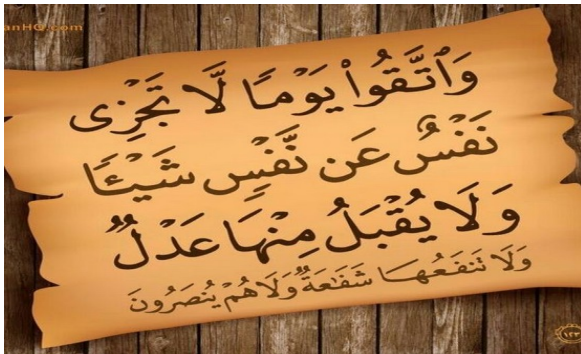 anHQ.com
وَٱتَّقُوا۟ يَوْمًا لَّا تَجْزِى
نَفْسٌ عَن نَّفْسٍ شَيْـًٔا
وَلَا يُقْبَلُ مِنْهَا عَدْلٌ
وَلَا تَنفَعُهَا شَفَـٰعَةٌ وَلَا هُمْ يُنصَرُونَ
١٢٣